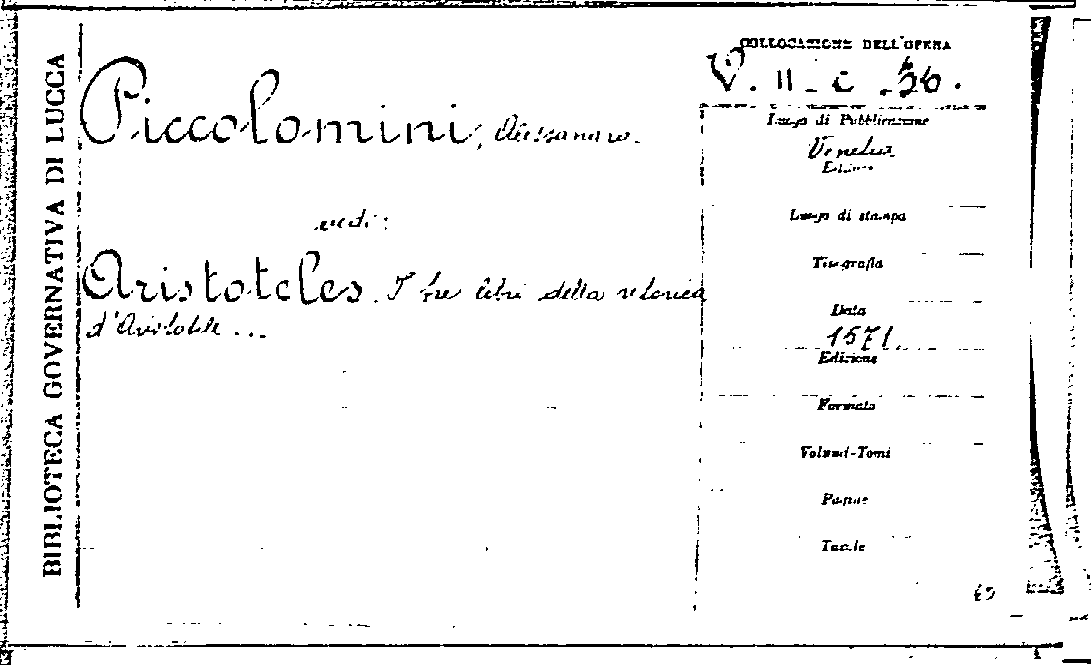 BIBLIOTECA GOVERNATIVA DI LUCCA
Piccolomini, Alessandro.
vedi:
Aristoteles. I tre libri della retorica
d'Aristotele ...
COLLOCAZIONE DELL'OPERA
V. II - C. 36.
Luogo di Pubblicazione
Venetia
Editore
Luogo di stampa
Tipografia
Data
1571.
Edizione
Formato
Volumi-Tomi
Pagine
Tavole